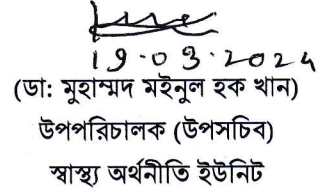 19.03.2024
(ডা: মুহাম্মদ মইনুল হক খান)
উপপরিচালক (উপসচিব)
স্বাস্থ্য অর্থনীতি ইউনিট